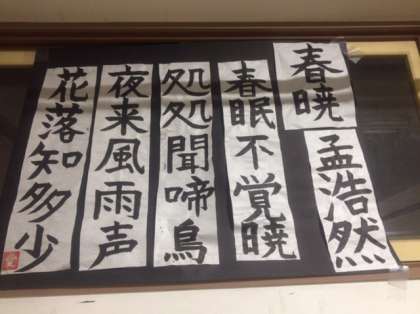 春暁
孟浩然
春眠不覚暁
処処聞啼鳥
夜来風雨声
花落知多少